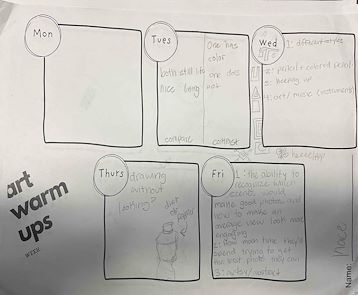 Mon
Tues
both still life
nice
being
One has
color
one does
not
compare
contrast
Wed
1: different styles
2: pencil + colored pencil
3: keeping up
4: art / music (instruments)
Thurs
drawing
without
looking?
diet
Fri
1: the ability to
recognize which
scenes would
make good photos and
how to make an
average view look more
engaging
2: How much time they'll
spend trying to get
the best photo they can
3:
art
warm
ups
WEEK:
Name: